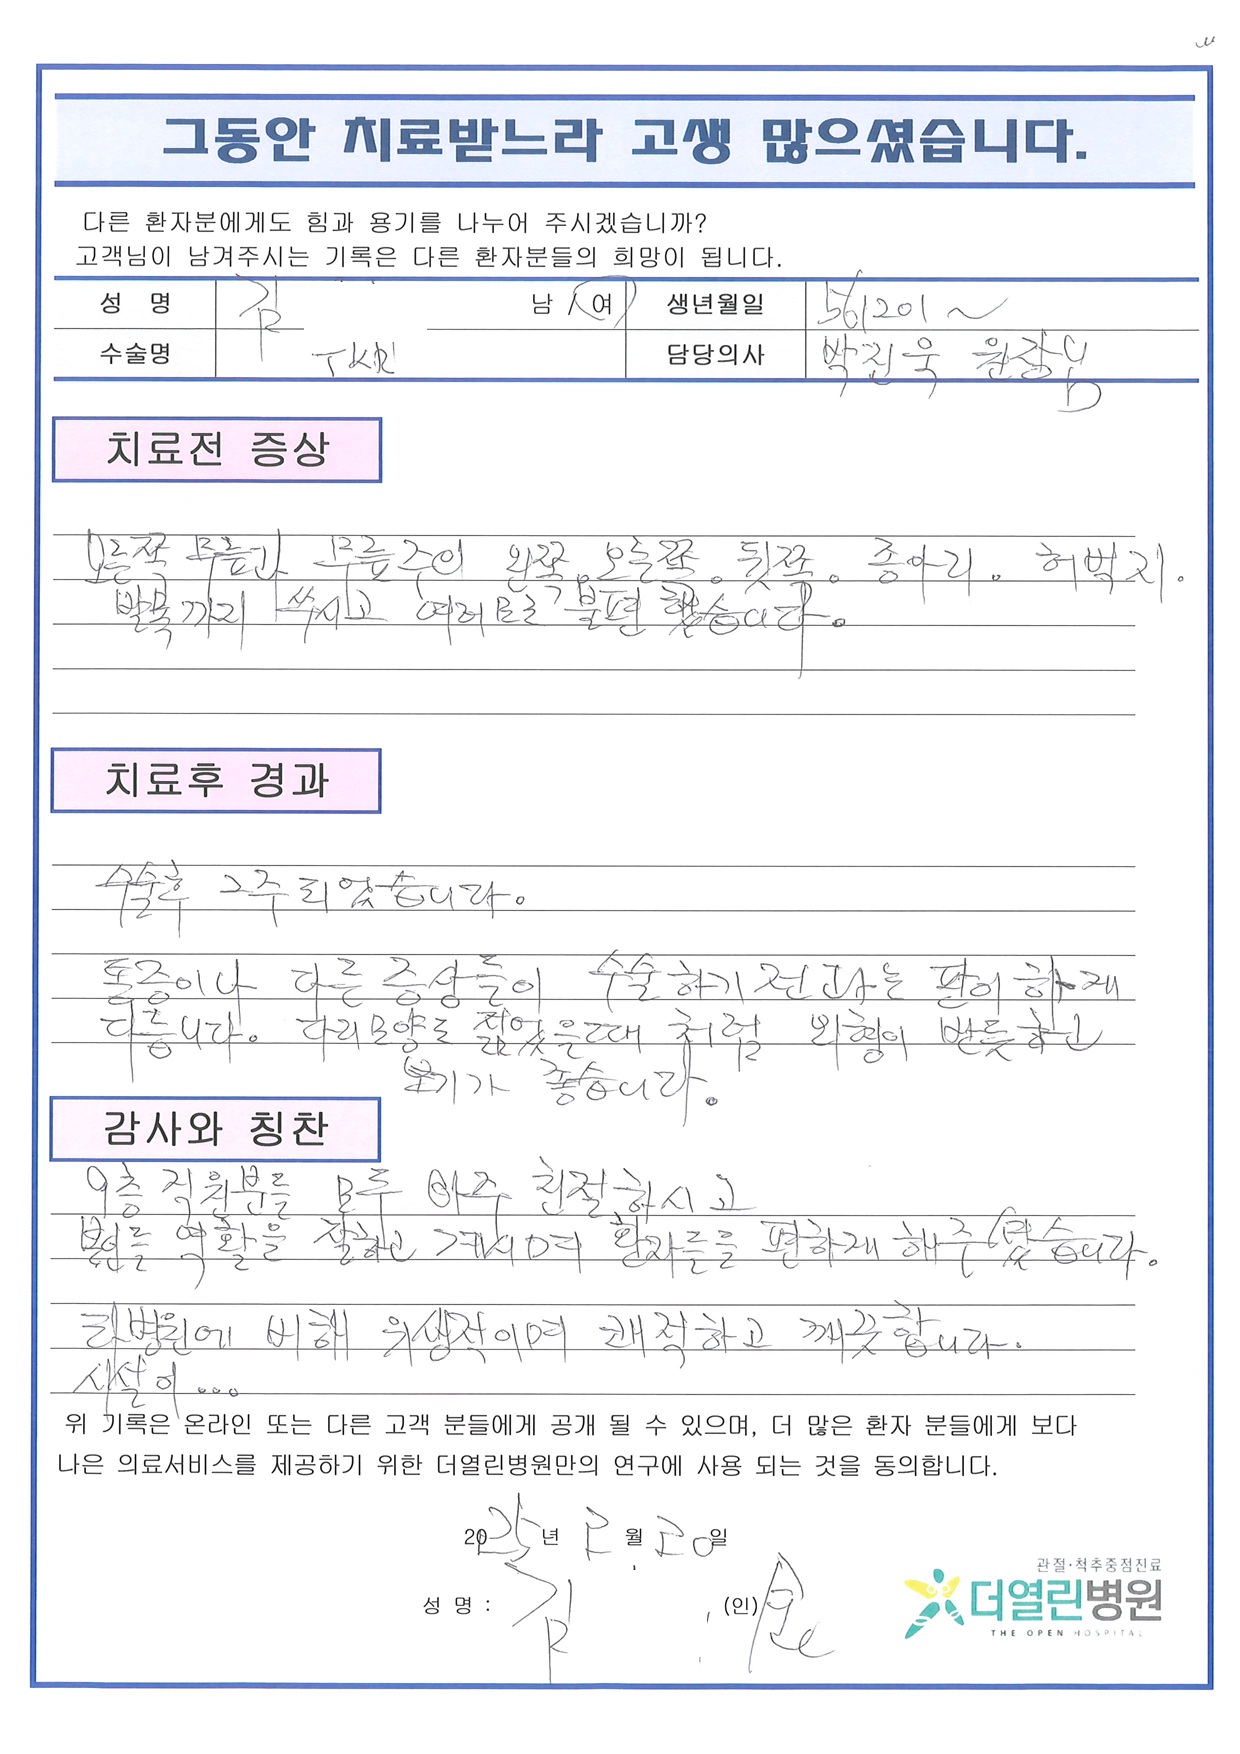 그동안 치료받느라 고생 많으셨습니다.
다른 환자분에게도 힘과 용기를 나누어 주시겠습니까?
고객님이 남겨주시는 기록은 다른 환자분들의 희망이 됩니다.
성 명 김 남 여 생년월일 561201 ~
수술명 TKR 담당의사 박진욱 원장님
치료전 증상
오른쪽 무릎과 무릎주의 왼쪽. 오른쪽. 뒷쪽. 종아리. 허벅지.
발목까지 쑤시고 여러모로 불편했습니다.
치료후 경과
수술후 2주 되었습니다.
통증이나 다른 증상들이 수술하기 전과는 판이하게
다릅니다. 다리모양도 젊었을때 처럼 외형이 반듯하고
보기가 좋습니다.
감사와 칭찬
9층 직원분들 모두 아주 친절하시고
역활을 잘하고 계시며 환자들을 편하게 해주셨습니다.
타병원에 비해 위생적이며 쾌적하고 깨끗합니다.
시설이...
위 기록은 온라인 또는 다른 고객 분들에게 공개 될 수 있으며, 더 많은 환자 분들에게 보다
나은 의료서비스를 제공하기 위한 더열린병원만의 연구에 사용 되는 것을 동의합니다.
2025년 2월 20일
성 명 : 김 (인)
관절·척추중점진료
더열린병원
THE OPEN HOSPITAL